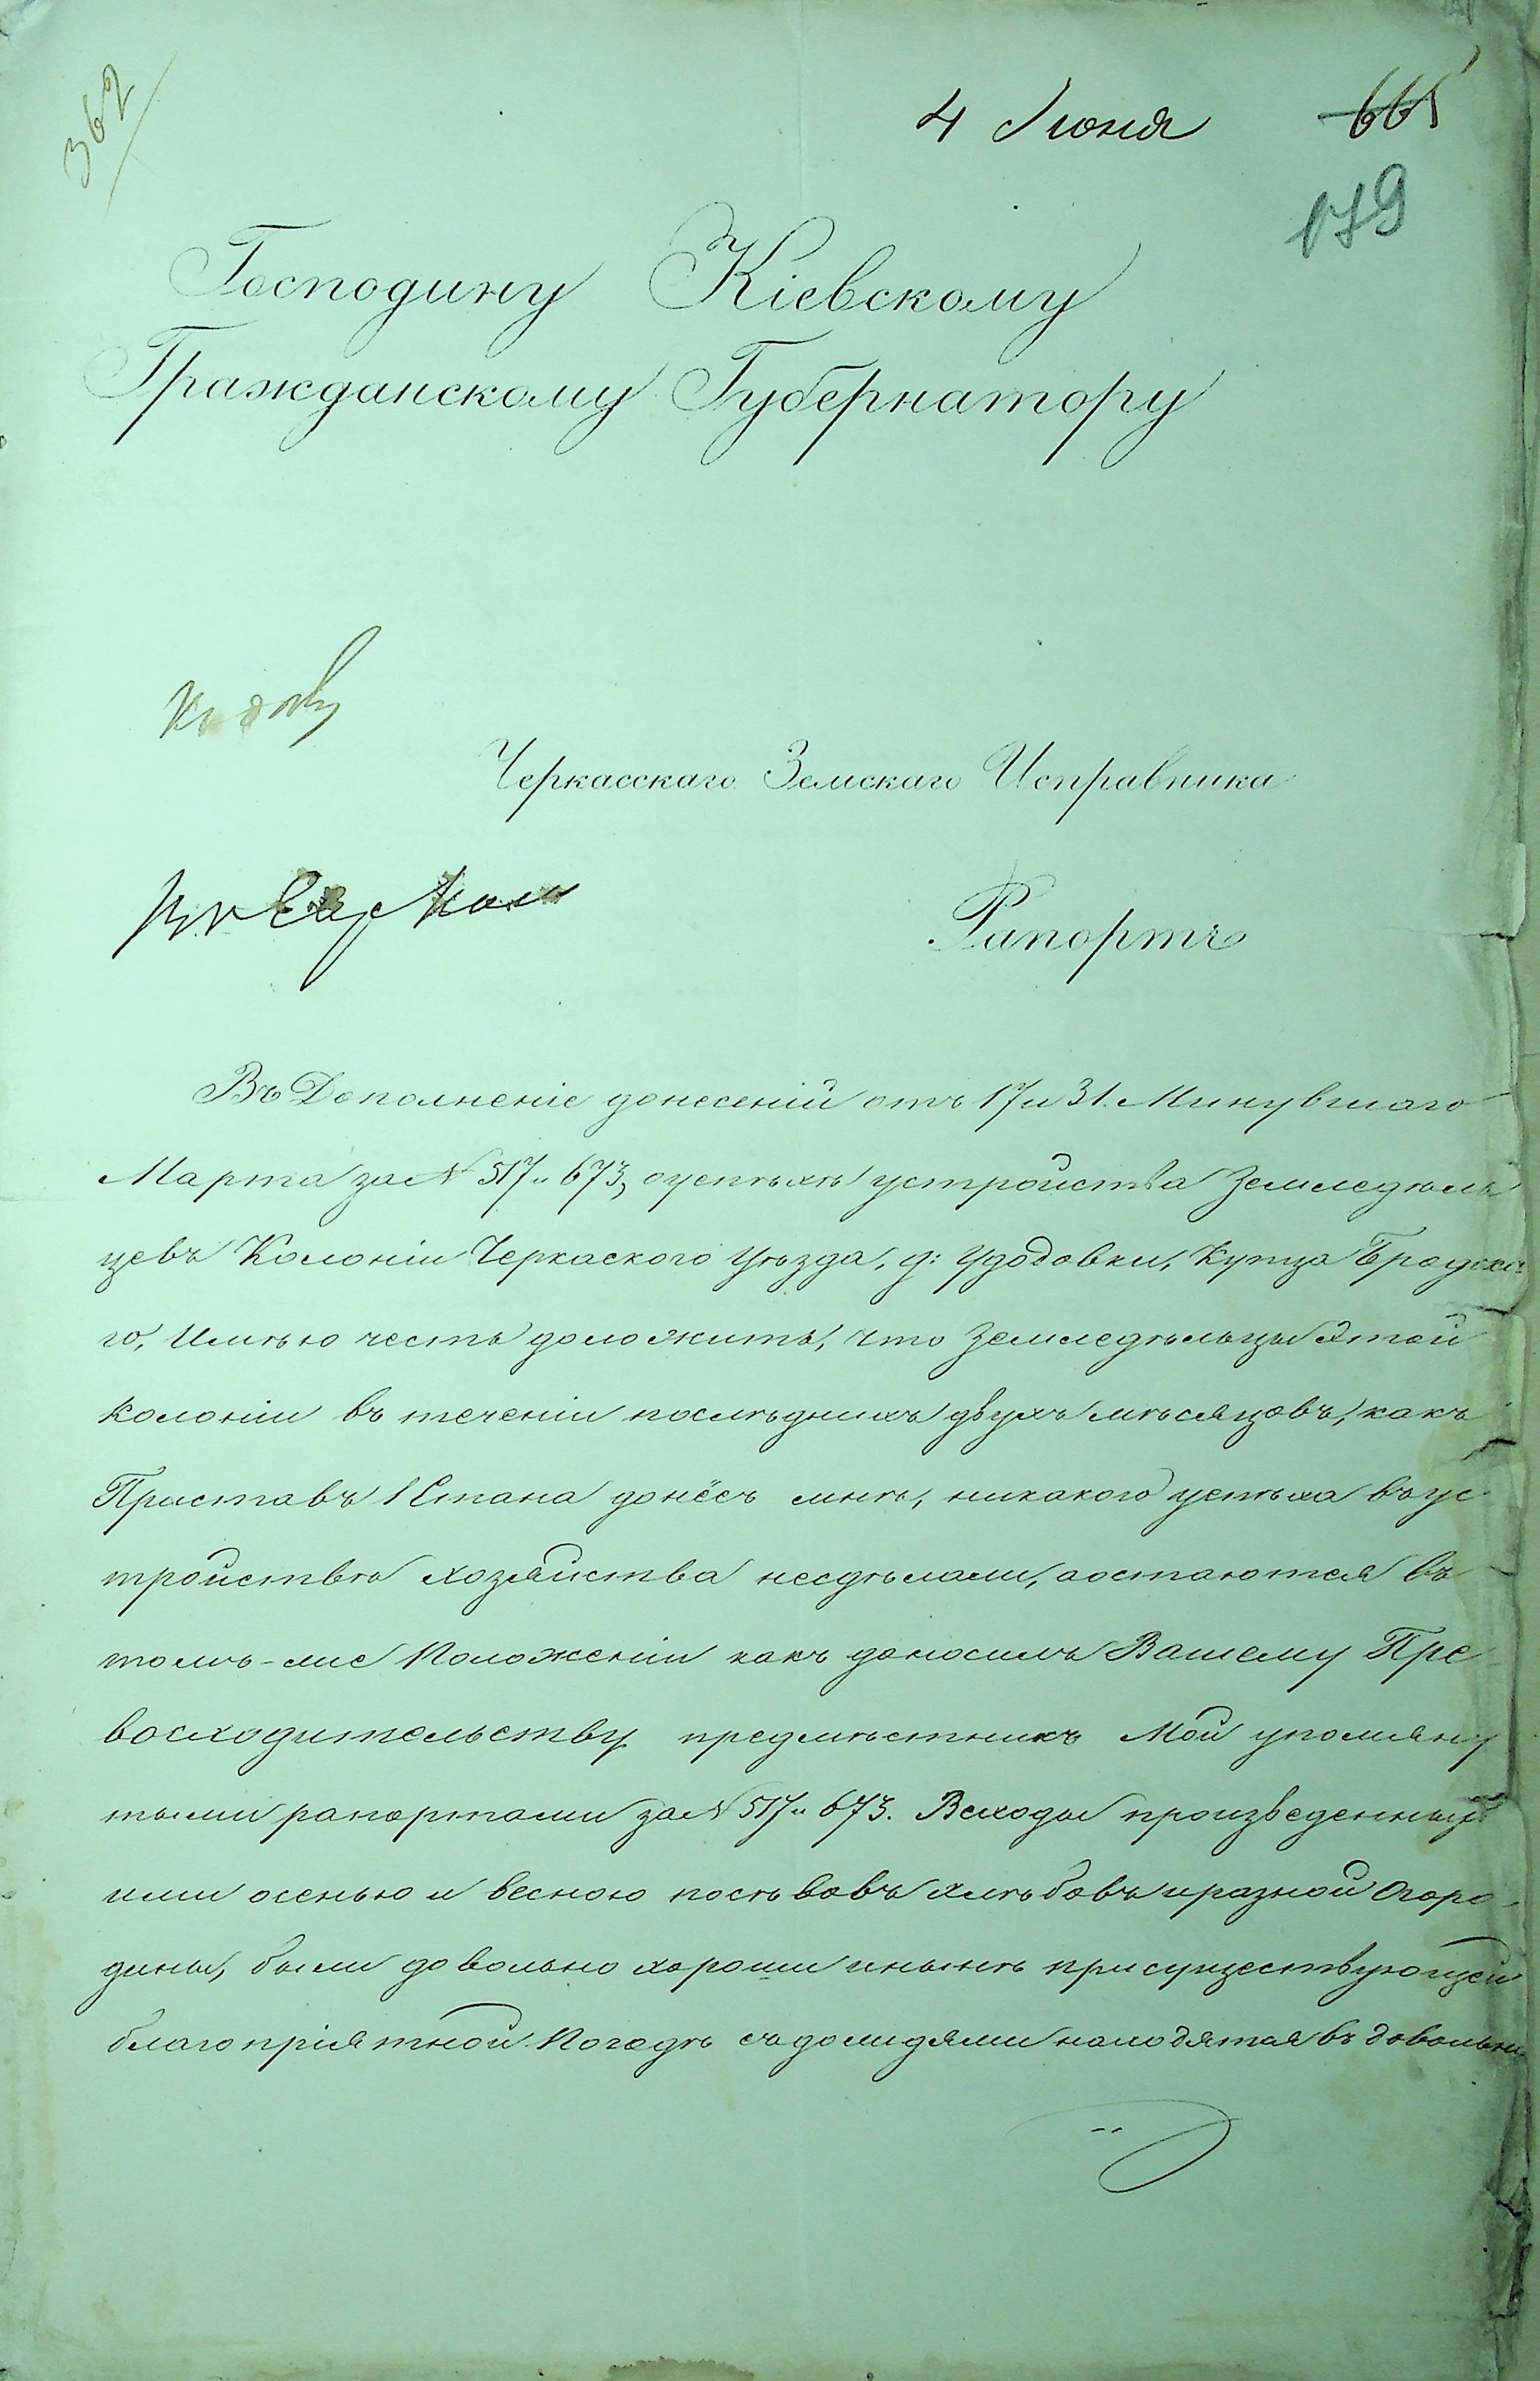 362
4 Июня
665
179
Господину Кіевскому
Гражданскому Губернатору
Къ дѣлу
Черкасскаго Земскаго Исправника
Рапортъ
Въ Дополненіе донесеній отъ 17 и 31. Минувшаго
Марта за N 517 и 673, о успѣхѣ устройства Земледѣль
цевъ Колоніи Черкаского Уѣзда, д: Удобовки, Купца Бродска
го, Имѣю честь доложить, что Земледѣльцы Этой
колоніи въ теченіи послѣднихъ двухъ мѣсяцовъ, какъ
Приставъ 1 Стана донёсъ мнѣ, никакого успѣха въ ус
тройствѣ хозяйства несдѣлали, а остаются въ
томъ-же Положеніи какъ доносилъ Вашему Пре
восходительству предмѣстникъ Мой упомяну
тыми рапортами за N 517 и 673. Всходы произведенныхъ
ими осенью и весною посѣвовъ хлѣбовъ и разной Огоро-
дины, были довольно хороши и нынѣ при существующей
благопріятной Погодѣ съ дождями находятся въ довольно